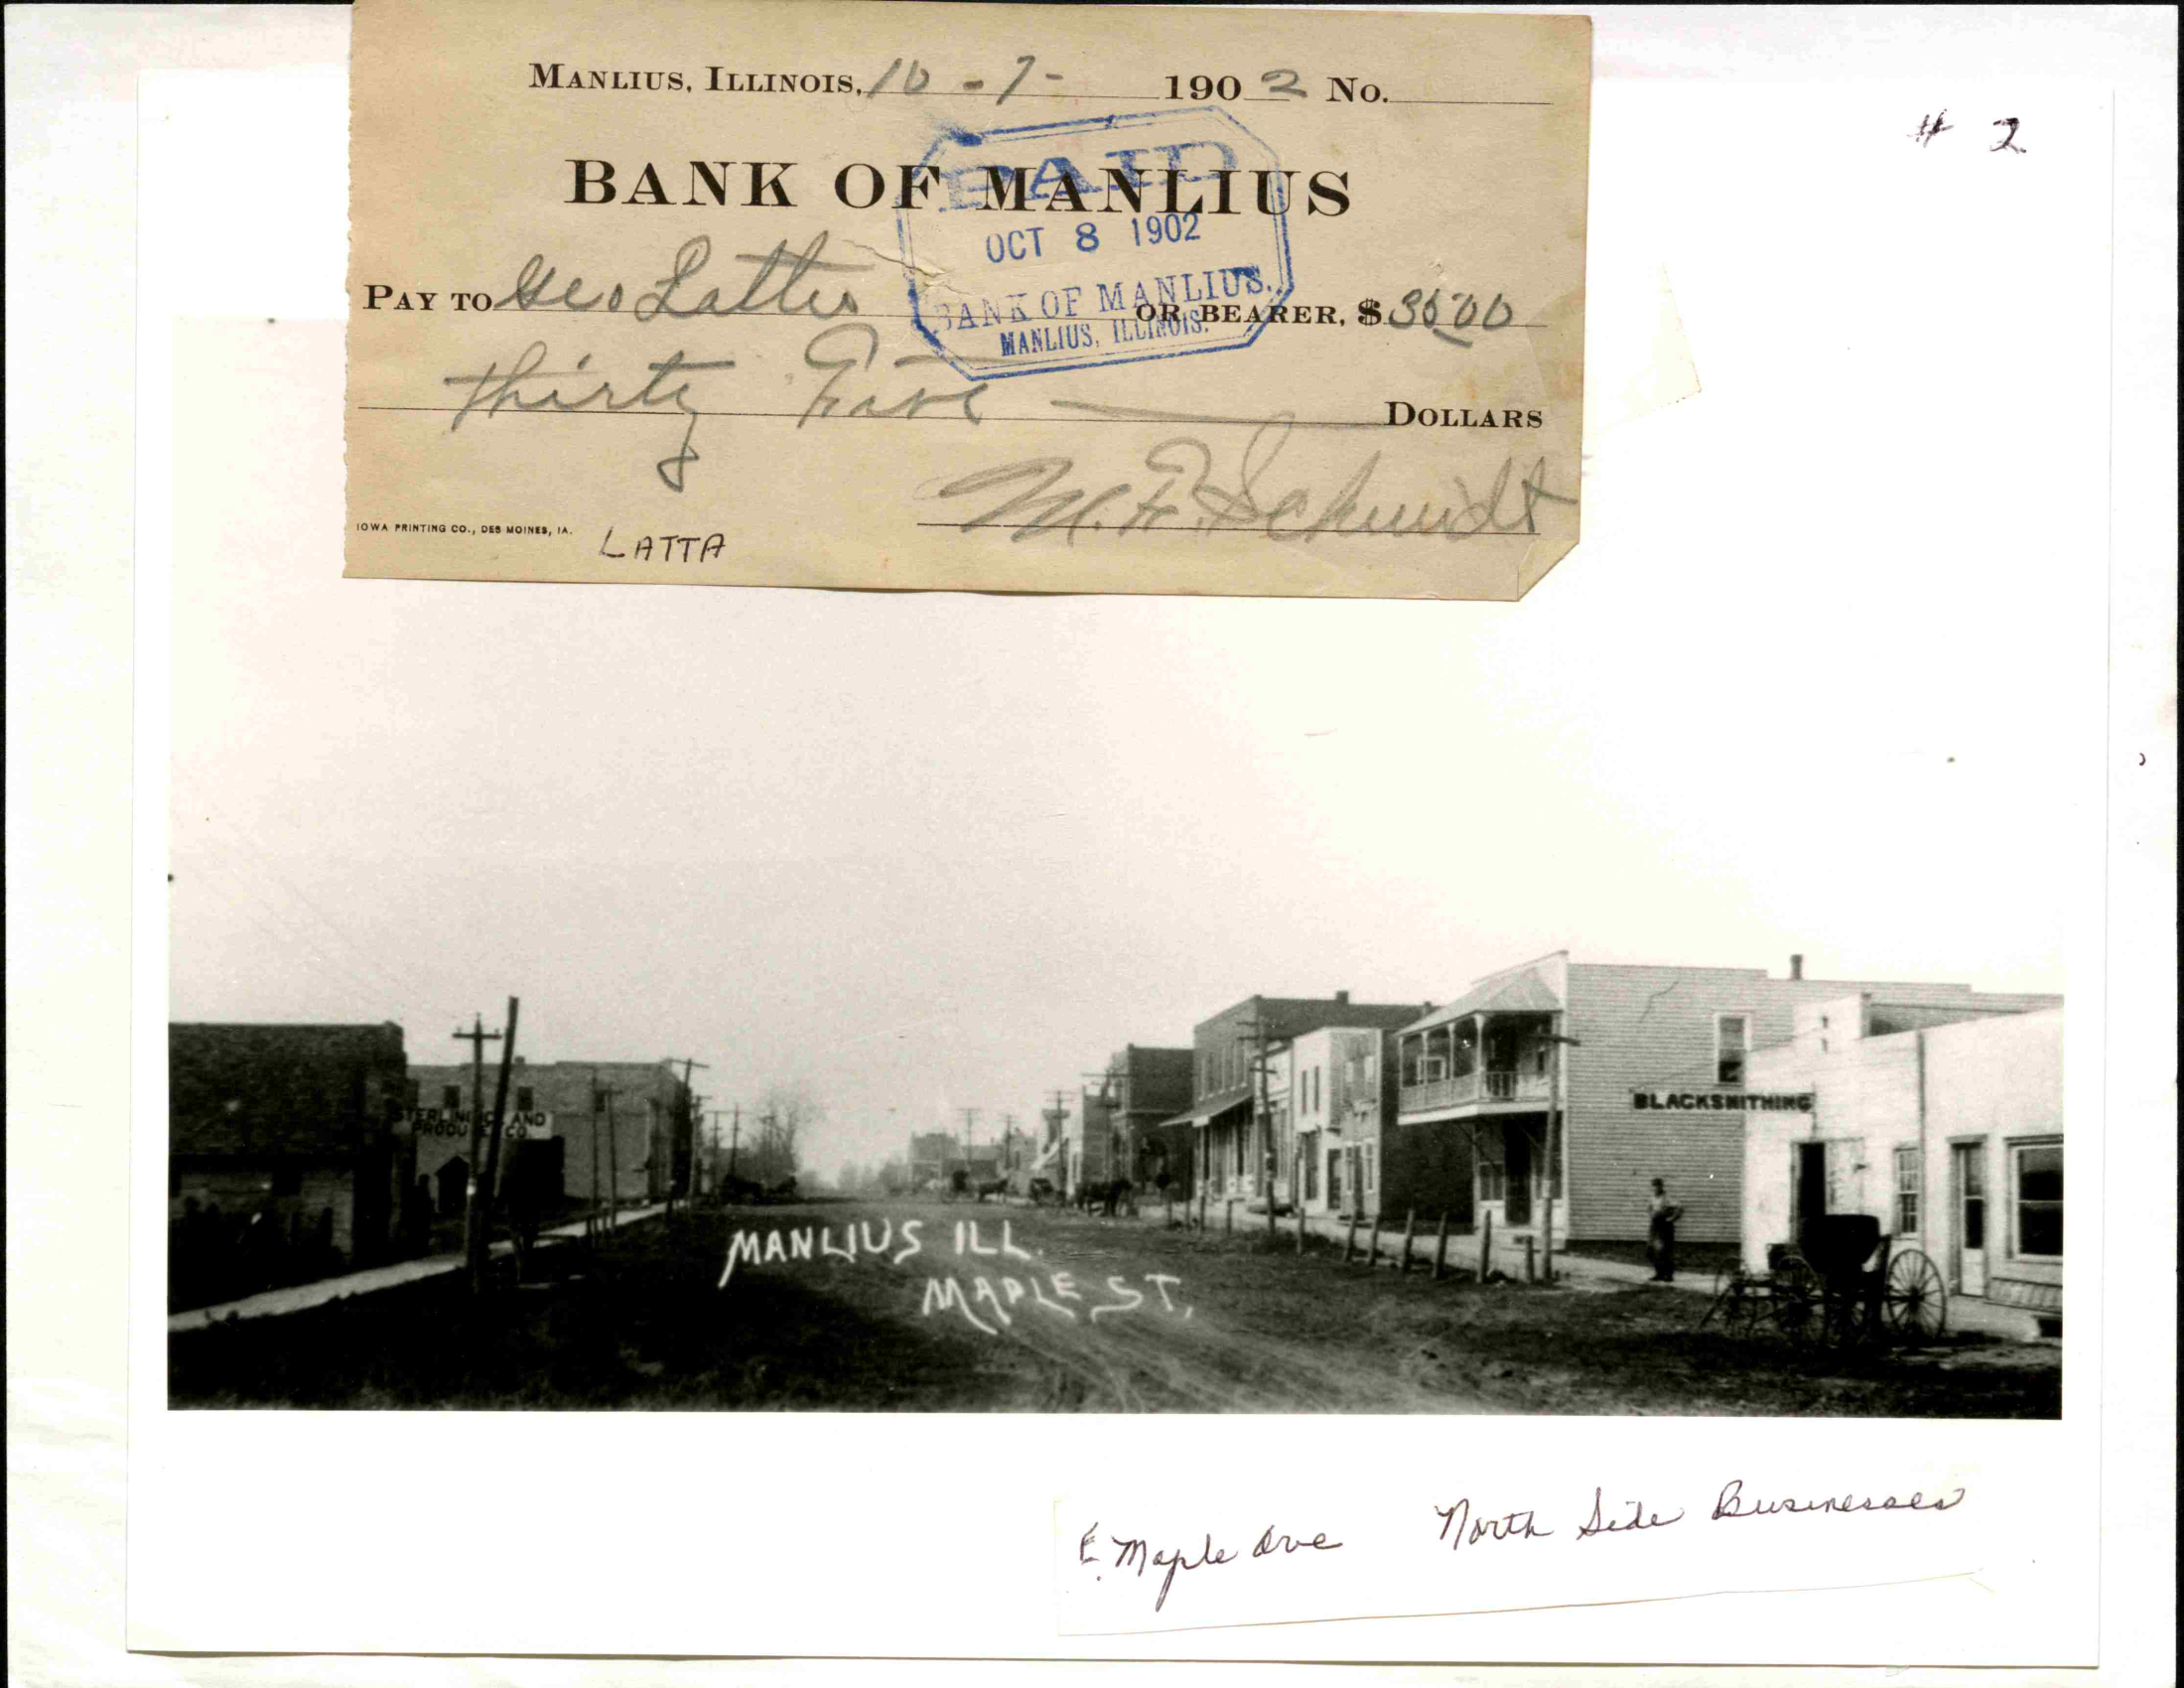 MANLIUS, ILLINOIS, 10 - 7 - 1902 No.
# 2
BANK OF MANLIUS
PAID
OCT 8 1902
BANK OF MANLIUS.
MANLIUS, ILLINOIS.
PAY TO Geo Latta OR BEARER, $ 35.00
Thirty Five DOLLARS
M. F. Schmidt
IOWA PRINTING CO., DES MOINES, IA.
LATTA
STERLING AND
PRODUCE CO
BLACKSMITHING
MANLIUS ILL.
MAPLE ST,
E. Maple Ave North Side Businesses